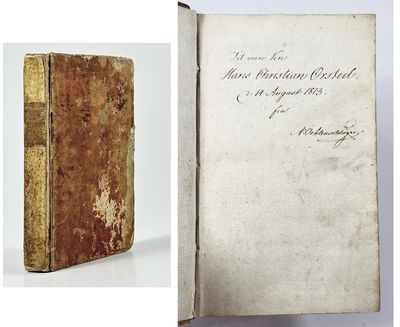 Til min Ven
Hans Christian Ørsted.
d. 14 August 1813.
fra
A Oehlenschläger.